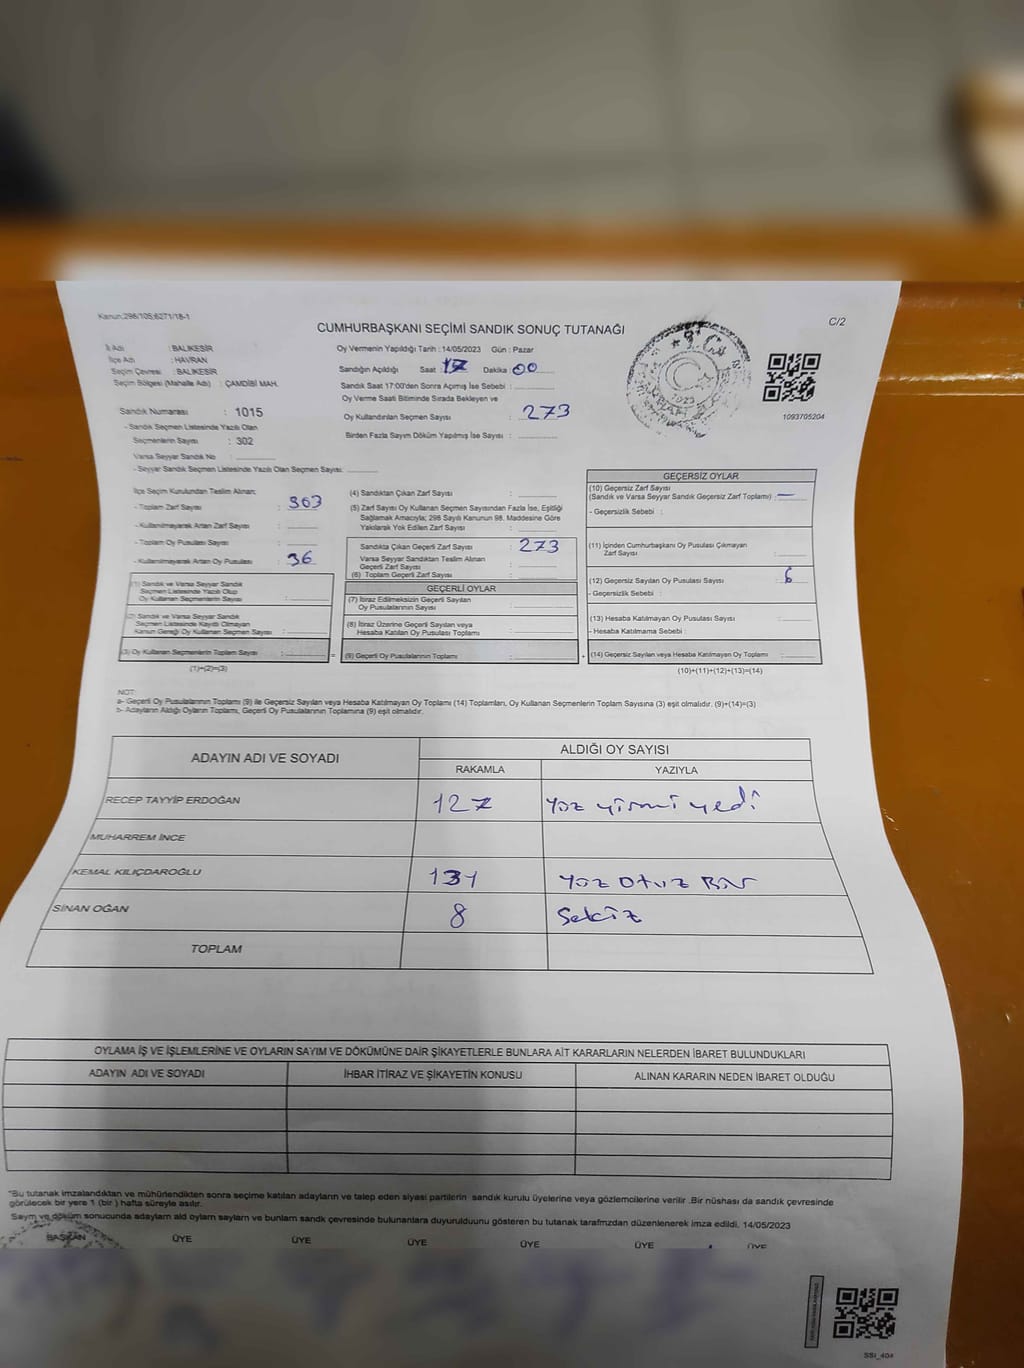 Kanun:298/105;6271/18-1
C/2
CUMHURBAŞKANI SEÇİMİ SANDIK SONUÇ TUTANAĞI
İl Adı : BALIKESİR
İlçe Adı : HAVRAN
Seçim Çevresi : BALIKESİR
Seçim Bölgesi (Mahalle Adı) : ÇAMDİBİ MAH.
Sandık Numarası : 1015
- Sandık Seçmen Listesinde Yazılı Olan
Seçmenlerin Sayısı : 302
Varsa Seyyar Sandık No :
- Seyyar Sandık Seçmen Listesinde Yazılı Olan Seçmen Sayısı:
Oy Vermenin Yapıldığı Tarih : 14/05/2023 Gün : Pazar
Sandığın Açıldığı Saat : 17 Dakika 00
Sandık Saat 17:00'den Sonra Açımış İse Sebebi :
Oy Verme Saati Bitiminde Sırada Bekleyen ve
Oy Kullandırılan Seçmen Sayısı : 273
Birden Fazla Sayım Döküm Yapılmış İse Sayısı :
2023
1093705204
İlçe Seçim Kurulundan Teslim Alınan;
- Toplam Zarf Sayısı : 303
- Kullanılmayarak Artan Zarf Sayısı :
- Toplam Oy Pusulası Sayısı :
- Kullanılmayarak Artan Oy Pusulası : 36
(1) Sandık ve Varsa Seyyar Sandık
Seçmen Listesinde Yazılı Olup
Oy Kullanan Seçmenlerin Sayısı :
(2) Sandık ve Varsa Seyyar Sandık
Seçmen Listesinde Kayıtlı Olmayan
Kanun Gereği Oy Kullanan Seçmen Sayısı :
(3) Oy Kullanan Seçmenlerin Toplam Sayısı :
(1)+(2)=(3)
(4) Sandıktan Çıkan Zarf Sayısı :
(5) Zarf Sayısı Oy Kullanan Seçmen Sayısından Fazla İse, Eşitliği
Sağlamak Amacıyla; 298 Sayılı Kanunun 98. Maddesine Göre
Yakılarak Yok Edilen Zarf Sayısı :
Sandıkta Çıkan Geçerli Zarf Sayısı : 273
Varsa Seyyar Sandıktan Teslim Alınan
Geçerli Zarf Sayısı :
(6) Toplam Geçerli Zarf Sayısı :
GEÇERLİ OYLAR
(7) İtiraz Edilmeksizin Geçerli Sayılan
Oy Pusulalarının Sayısı :
(8) İtiraz Üzerine Geçerli Sayılan veya
Hesaba Katılan Oy Pusulası Toplamı :
(9) Geçerli Oy Pusulalarının Toplamı :
GEÇERSİZ OYLAR
(10) Geçersiz Zarf Sayısı
(Sandık ve Varsa Seyyar Sandık Geçersiz Zarf Toplamı) : —
- Geçersizlik Sebebi :
(11) İçinden Cumhurbaşkanı Oy Pusulası Çıkmayan
Zarf Sayısı :
(12) Geçersiz Sayılan Oy Pusulası Sayısı : 6
- Geçersizlik Sebebi :
(13) Hesaba Katılmayan Oy Pusulası Sayısı :
- Hesaba Katılmama Sebebi :
(14) Geçersiz Sayılan veya Hesaba Katılmayan Oy Toplamı :
(10)+(11)+(12)+(13)=(14)
NOT:
a- Geçerli Oy Pusulalarının Toplamı (9) ile Geçersiz Sayılan veya Hesaba Katılmayan Oy Toplamı (14) Toplamları, Oy Kullanan Seçmenlerin Toplam Sayısına (3) eşit olmalıdır. (9)+(14)=(3)
b- Adayların Aldığı Oyların Toplamı, Geçerli Oy Pusulalarının Toplamına (9) eşit olmalıdır.
ADAYIN ADI VE SOYADI
ALDIĞI OY SAYISI
RAKAMLA
YAZIYLA
RECEP TAYYİP ERDOĞAN 127 yüz yirmi yedi
MUHARREM İNCE
KEMAL KILIÇDAROĞLU 131 yüz otuz Bir
SİNAN OĞAN 8 Sekiz
TOPLAM
OYLAMA İŞ VE İŞLEMLERİNE VE OYLARIN SAYIM VE DÖKÜMÜNE DAİR ŞİKAYETLERLE BUNLARA AİT KARARLARIN NELERDEN İBARET BULUNDUKLARI
ADAYIN ADI VE SOYADI
İHBAR İTİRAZ VE ŞİKAYETİN KONUSU
ALINAN KARARIN NEDEN İBARET OLDUĞU
"Bu tutanak imzalandıktan ve mühürlendikten sonra seçime katılan adayların ve talep eden siyasi partilerin sandık kurulu üyelerine veya gözlemcilerine verilir .Bir nüshası da sandık çevresinde
görülecek bir yere 1 (bir ) hafta süreyle asılır.
Sayım ve döküm sonucunda adaylam ald oylam sayları ve bunlam sandık çevresinde bulunanlara duyurulduunu gösteren bu tutanak tarafmzdan düzenlenerek imza edildi. 14/05/2023
BAŞKAN ÜYE ÜYE ÜYE ÜYE ÜYE ÜYE